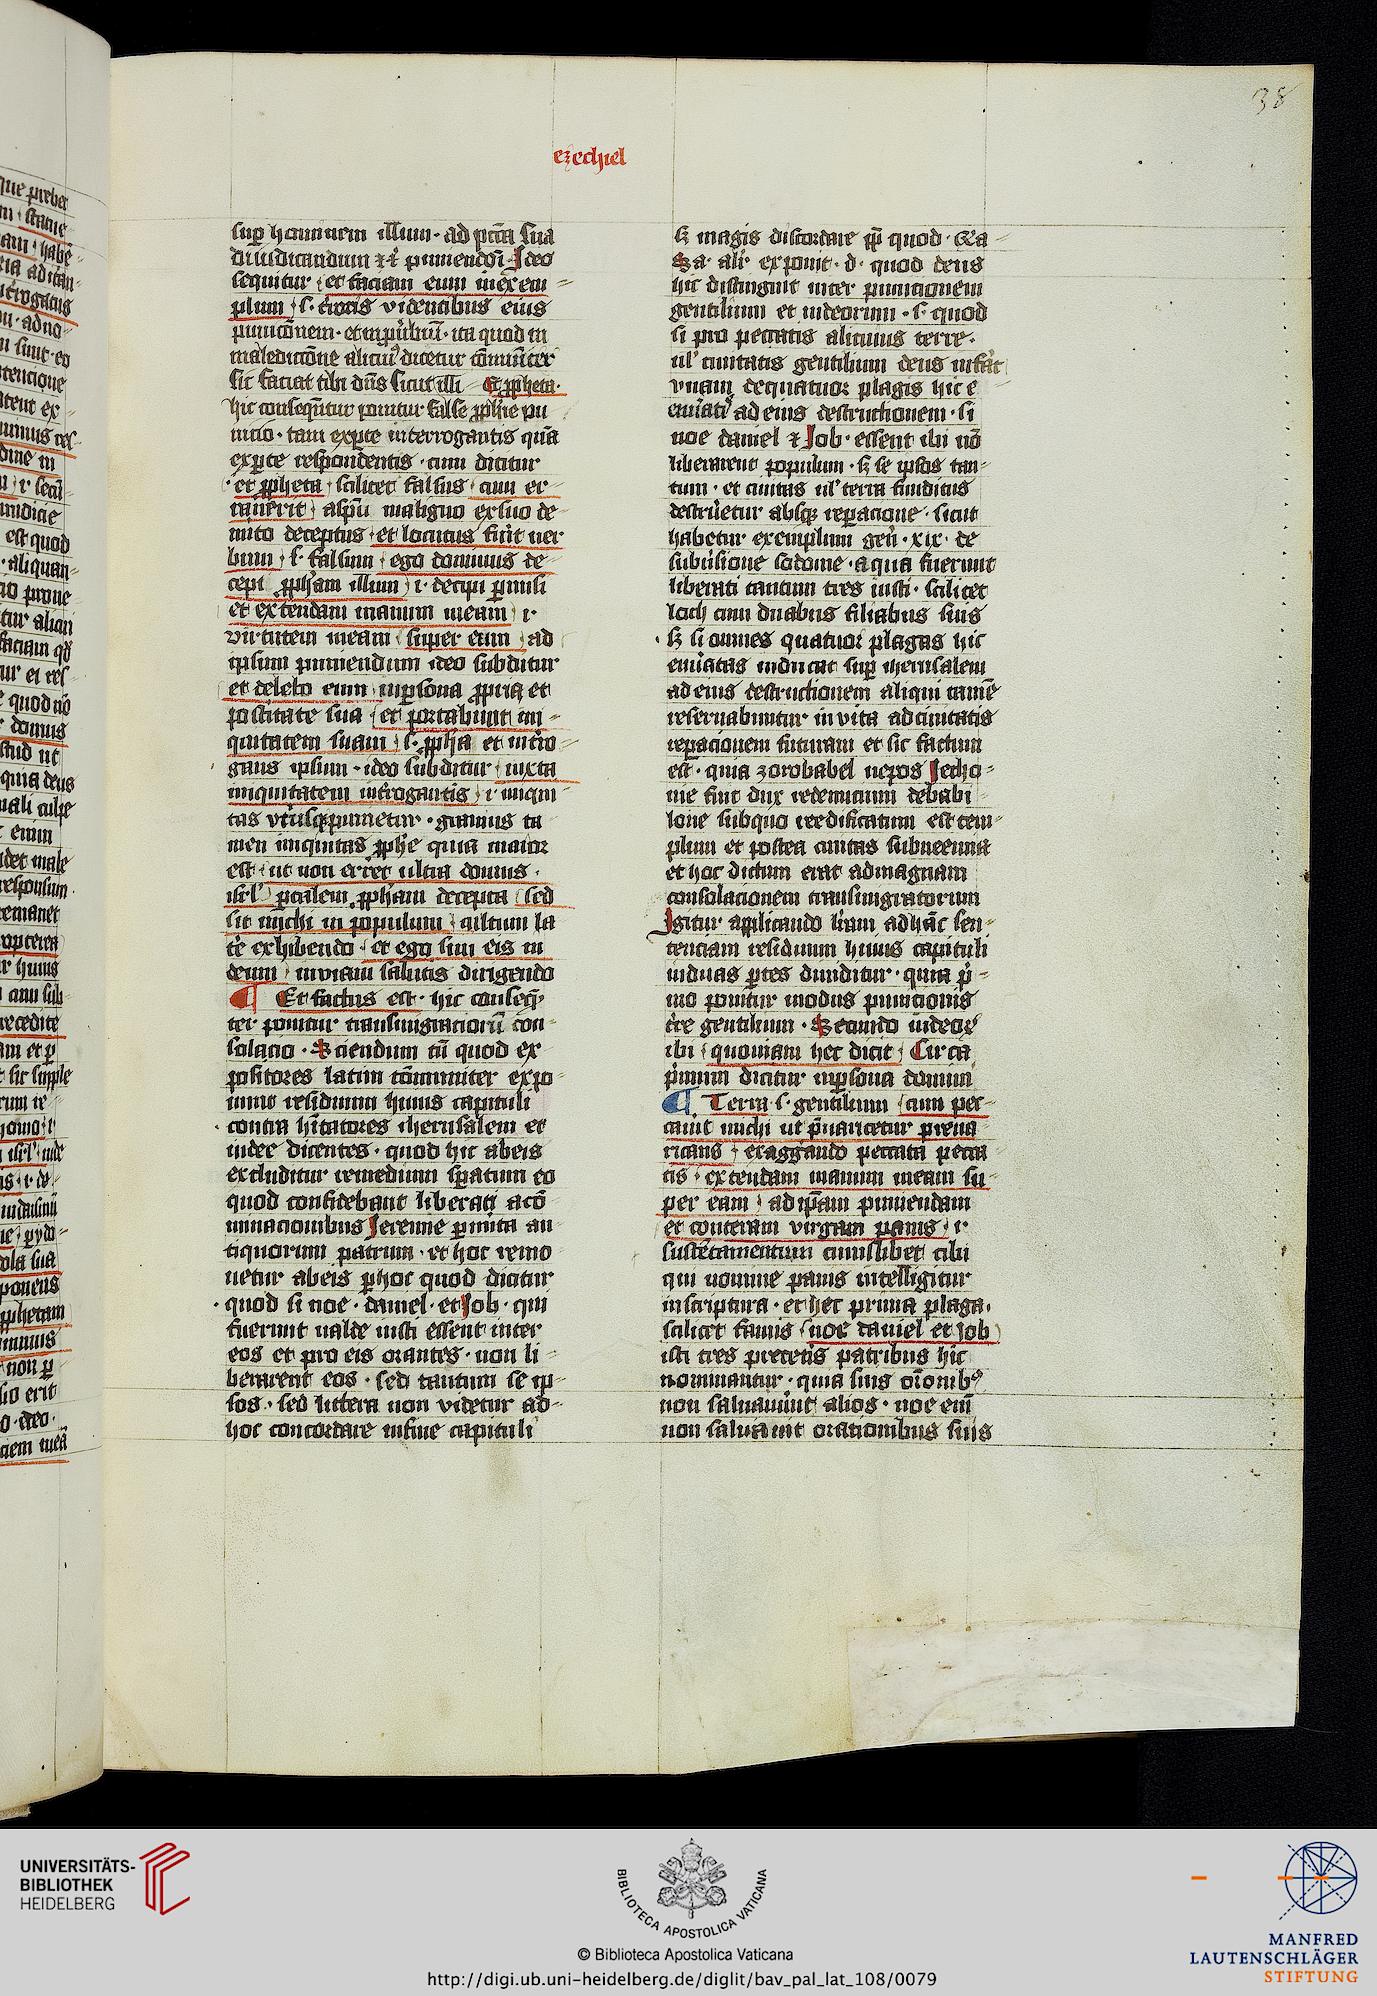 38
ezechiel
sup hominem illum · ad pctā sua
diiudicandum et puniendū · Ideo
sequitur et faciam eum in exem
plum · s · videntibus eius
punicōnem · ita quod in
maledictōne alicui' dicetur cōmuniter
sic faciat tibi dn̄s sicut illi Et ꝓpheta ·
hic consequētur ponitur false ꝓphīe pu
nitio · tam exꝑte interrogantis quā
exꝑte respondentis · cum dicitur
et ꝓpheta scilicet falsus cum er
rauerit aspū maligno ex suo de
mīto deceptus et locutus fūit uer
bum · s · falsum ego dominus de
cepi ꝓphām illum · i · decipi ꝑmisi
et extendam manum meam · i ·
virtutem meam super eum ad
ipsum puniendum ideo subditur
et delebo eum inꝑsona ꝓpria et
postitate sua et portabunt ini
quitatem suam s · ꝓpha et intro
gans ipsum · ideo subditur iuxta
iniquitatem introgantis · i · iniqui
tas vtriusqꝫ punietur · grauius ta
men iniquitas ꝓphe quia maior
est ut non erret ultra domus ·
isrl' ꝑ talem ꝓpham decepta sed
sit michi in populum cultum la
trē exhibendo et ego sim eis in
deum inviam salutis dirigendo
¶ Et factus est · hic conseq̄
ter ponitur transmigracionū con
solacio · Sciendum tn̄ quod ex
positores latini cōmuniter expo
nunt residuum huius capituli
contra hītatores iherusalem et
iudee dicentes · quod hic abeis
excluditur remedium speratum eo
quod confidebant liberati acō
minacionibus Jeremie ꝑ mīta an
tiquorum patrum · et hoc remo
uetur abeis ꝑ hoc quod dicitur
quod si noe · daniel · et Job · qui
fuerunt ualde iusti essent inter
eos et pro eis orantes · non li
berarent eos · sed tantum se ip
sos · sed littera non videtur ad
hoc concordare infine capituli
sꝫ magis discordare ꝓp quod
alit' exponit · d · quod deus
hic distinguit inter punicionem
gentilium et iudeorum · s · quod
si pro peccatis alicuius terre ·
ul' ciuitatis gentilium deus infert
vnam dequatuor plagis hic e
ad eius destructionem · si
noe daniel et Job · essent ibi nō
liberarent populum · sꝫ se ipsos tan
tum · et ciuitas ul' terra funditus
destruetur absqꝫ reparacione · sicut
habetur exemplum gen̄ · xix · de
subūsione sodome · a qua fuerunt
liberati tantum tres iusti · scilicet
loth cum duabus filiabus suis
sꝫ si omnes quatuor plagas hic
enūatas inducat sup iherusalem
ad eius destructionem aliqui tamē
reseruabuntur in vita ad ciuitatis
repacionem futuram et sic factum
est · quia zorobabel nepos Jecho
nie fuit dux redeuntium debabi
lone subquo reedificatum est tem
plum et postea ciuitas subneemia
et hoc dictum erat admagnam
consolacionem transmigratorum
Igitur applicando lrām adhāc sen
tenciam residuum huius capituli
induas ꝑtes diuiditur · quia p̄
mo ponitur modus punicionis
tr̄e gentilium · Secundo iudeoꝝ
ibi quoniam hec dicit Circa
p̄mum dicitur inꝑsona domini
¶ Terra · s · gentilium cum pec
cauit michi ut p̄uaricetur preua
ricans exaggando peccata pecca
tis extendam manum meam su
per eam ad ip̄am puniendam
et conteram virgam panis · i ·
sustētamentum cuiuslibet cibi
qui nomine panis intelligitur
inscriptura · et hec prima plaga ·
scilicet famis noe daniel et Job
isti tres preceteris patribus hic
nominantur · quia suis orōnibꝰ
non saluauūt alios · noe eni
non saluauit orationibus suis
UNIVERSITÄTS-
BIBLIOTHEK
HEIDELBERG
BIBLIOTECA APOSTOLICA VATICANA
© Biblioteca Apostolica Vaticana
http://digi.ub.uni-heidelberg.de/diglit/bav_pal_lat_108/0079
MANFRED
LAUTENSCHLÄGER
STIFTUNG